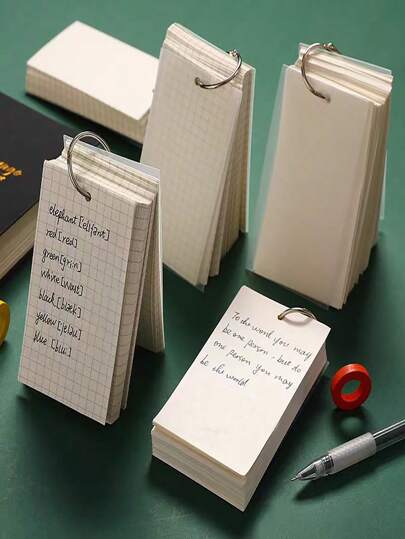 elephant [elifənt]
red [red]
green [grin]
white [waıt]
black [blæk]
yellow [jeləu]
blue [blu:]
To the word you may
be one person, but to
one person you may
be the world